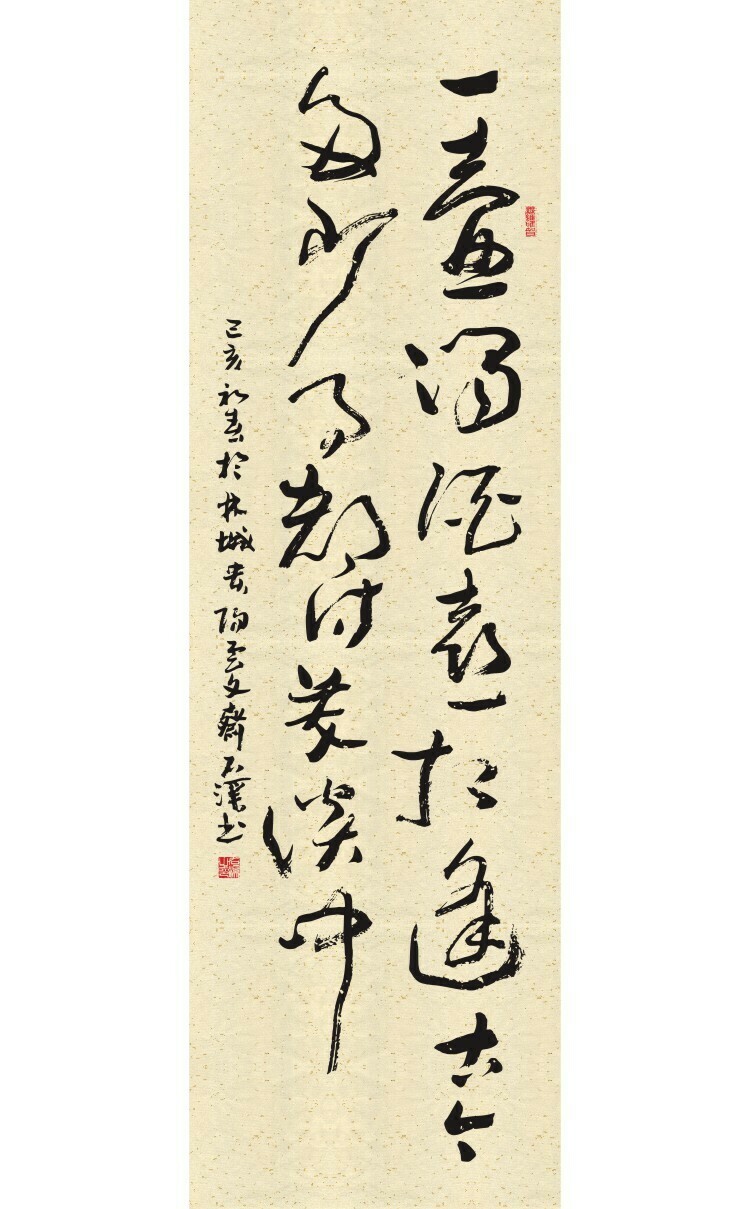 一壶浊酒喜相逢古今
多少事都付笑谈中
己亥初春於林城贵阳云文斋石溪书